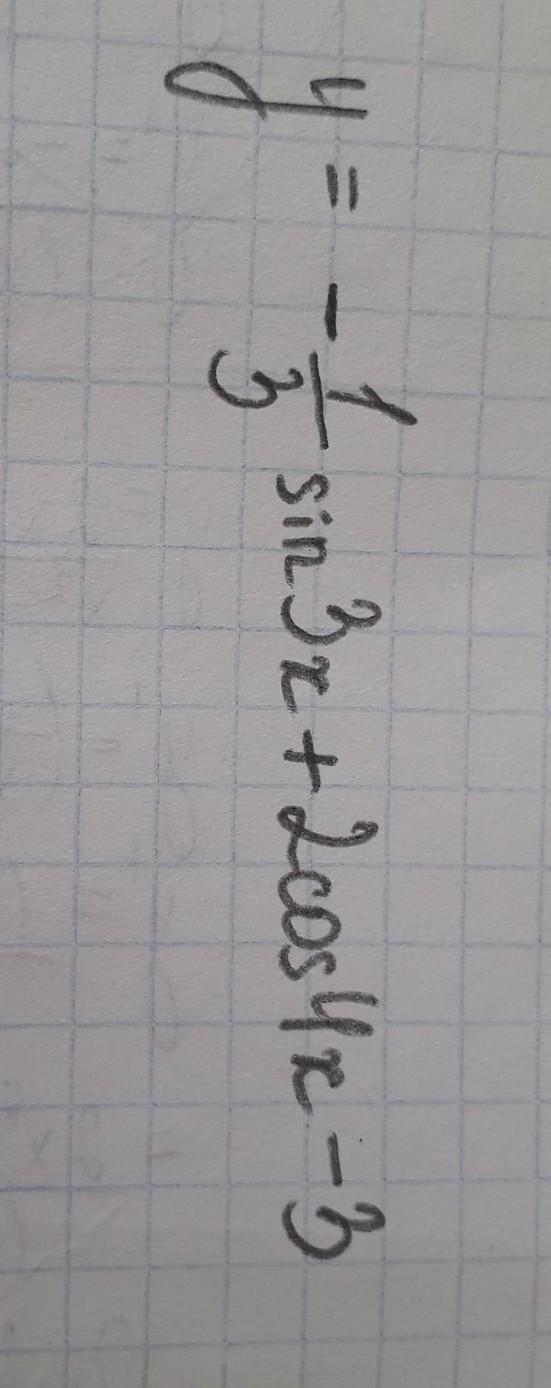 y = - 1/3 sin3x + 2cos4x - 3